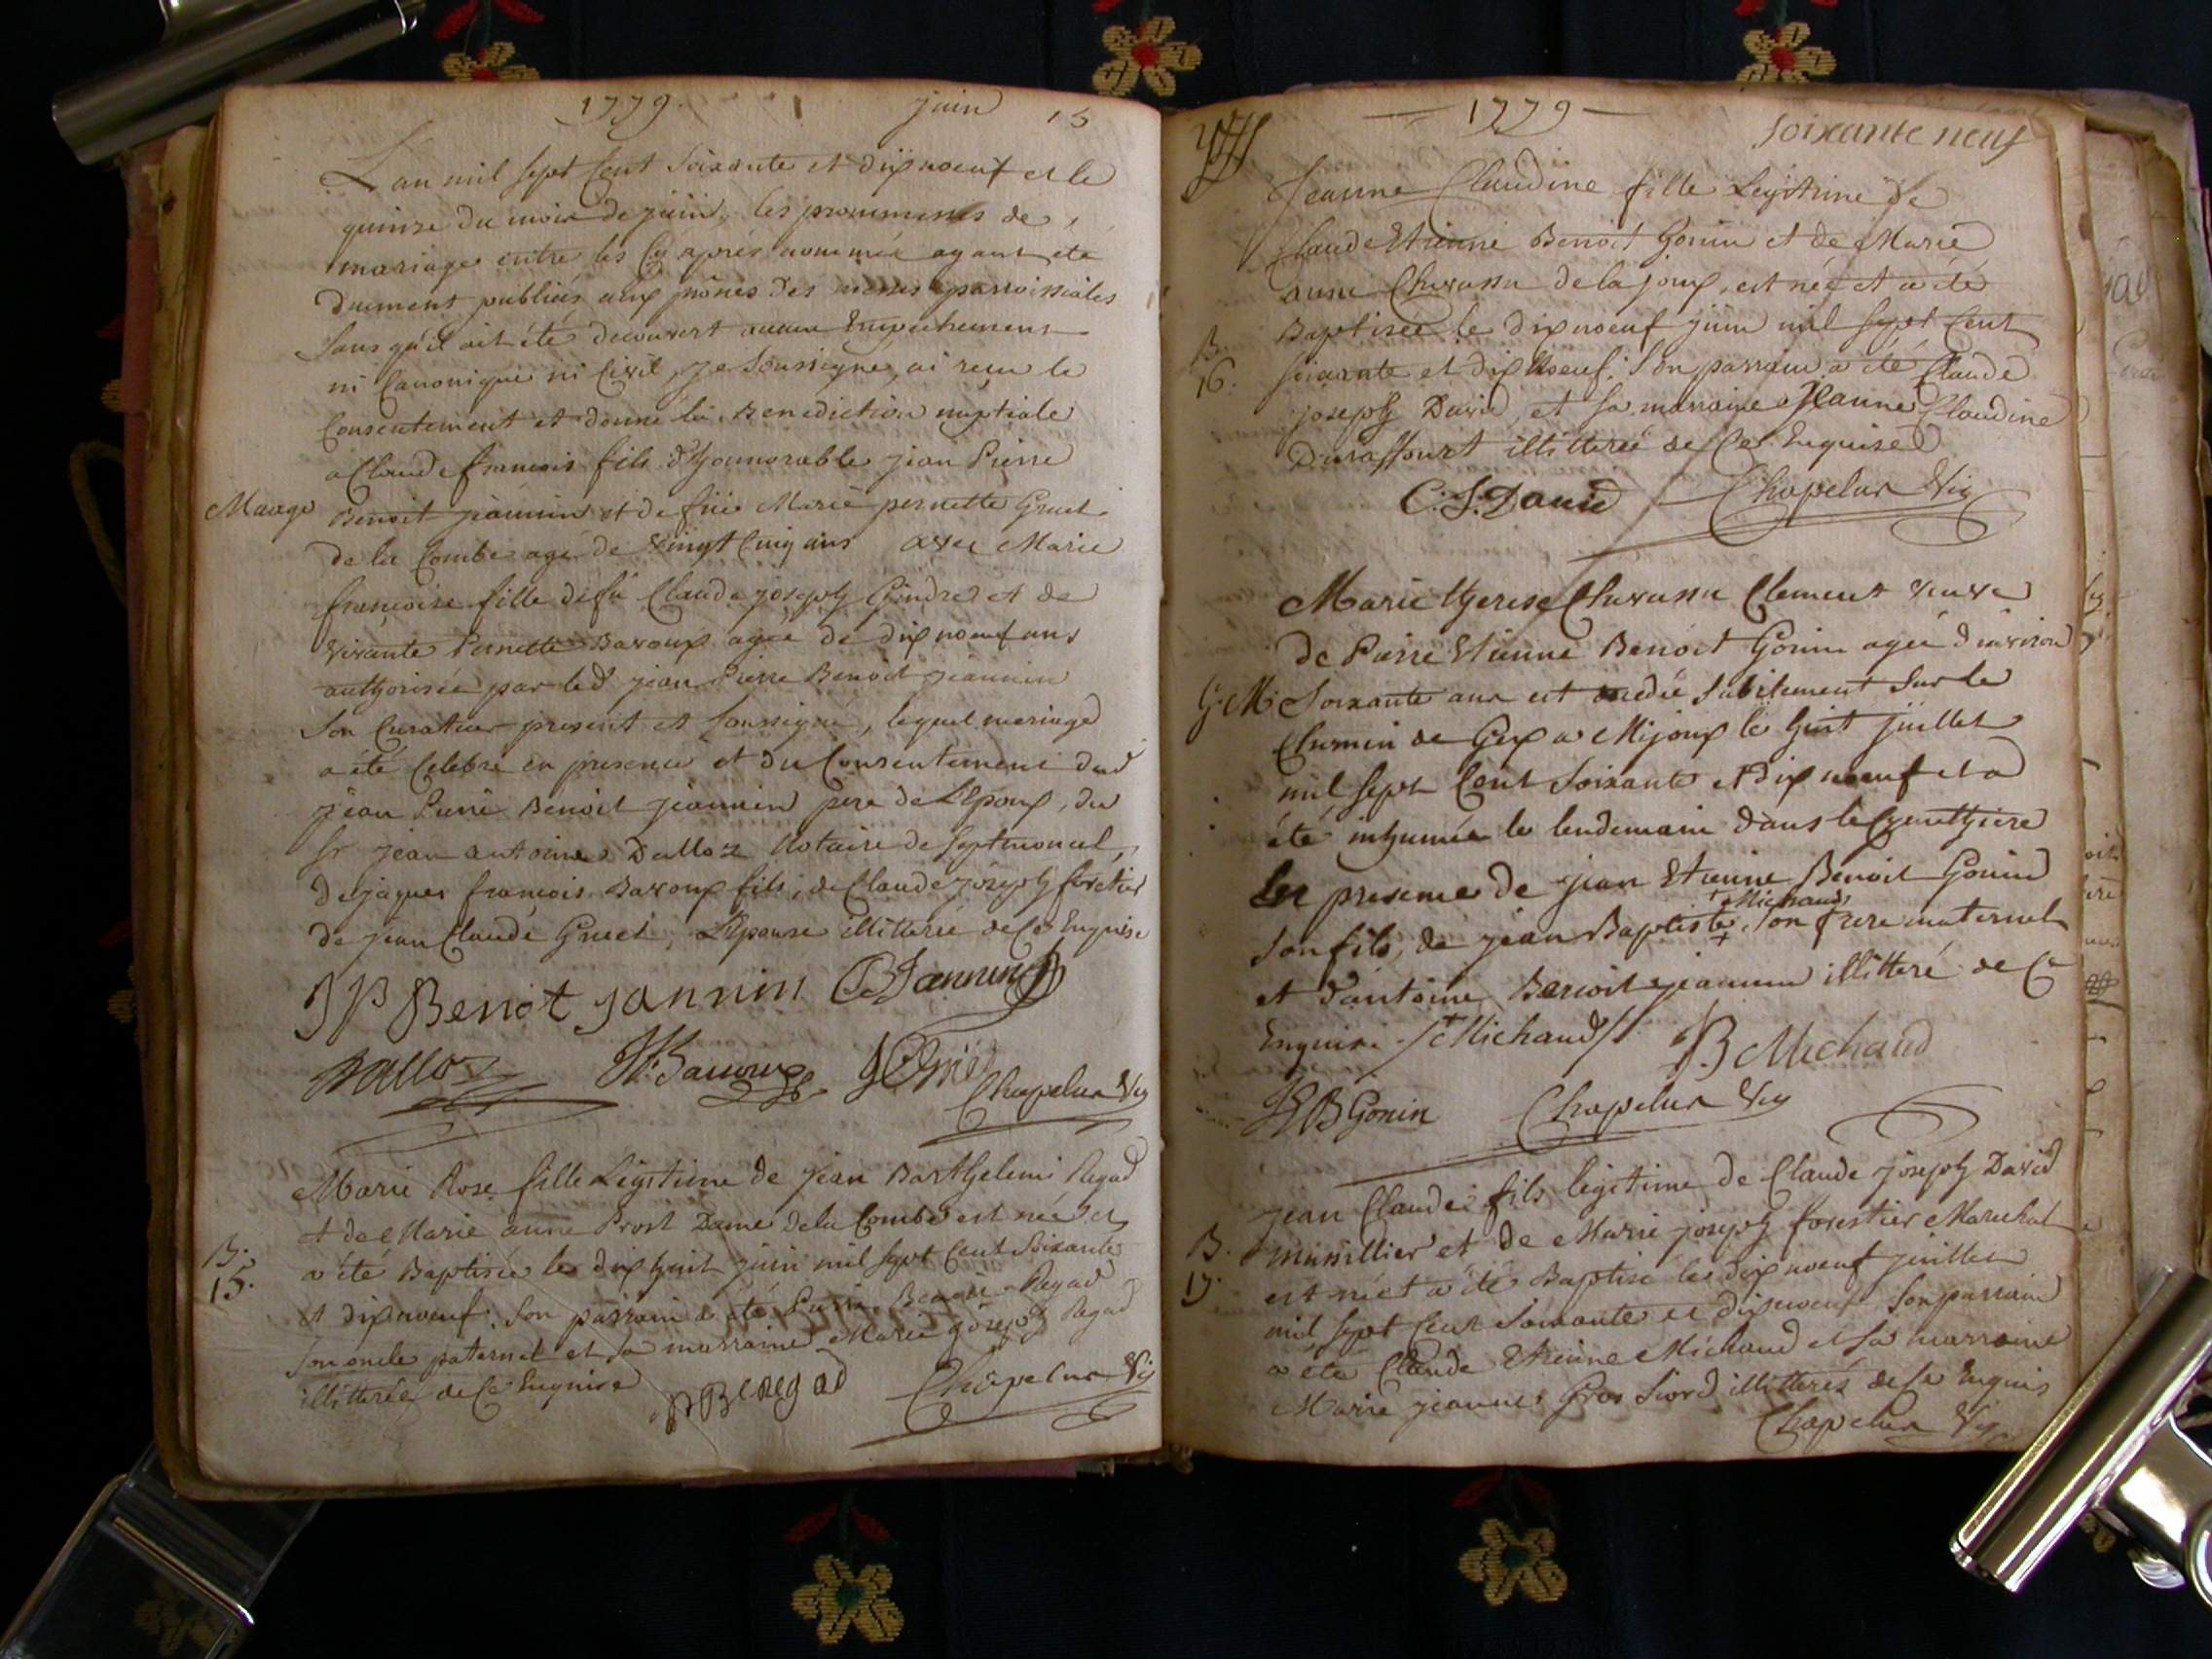 1779. juin 15
L'an mil sept Cent soixante et dix noeuf et le
quinze du mois de juin, les promesses de
mariage entre les Cy après nommés ayant été
duement publiées aux prônes des messes parroissiales
sans qu'il ait été découvert aucun Empechement
ni Canonique ni Civil, je soussigné, ai reçu le
Consentement et donné la Benediction nuptiale
a Claude françois fils d'honnorable jean Pierre
Mariage Benoit jeannin et de füe Marie pernette Gruel
de la Combe agé de vingt Cinq ans avec Marie
françoise fille de fû Claude joseph Gindre et de
vivante Pernette Baroux agée de dix noeuf ans
authorisée par led jean Pierre Benoit jeannin
son Curateur present et soussigné, lequel mariage
a été Celebré en présence et du Consentement dud
jean Pierre Benoit jeannin pere de L'Epoux, du
Sr jean antoine Dalloz Notaire de Septmoncel,
de jaques françois Baroux fils, de Claude joseph foretier
de jean Claude Gruel, L'Epouse illitterée de Ce Enquise
J P Benot janNin C B Jannin
Dalloz Chapelur Vic
Marie Rose fille Legitime de jean Barthelemi Regad
et de Marie anne Prost Dame de la Combe est née et
B. a été Baptisée le dix huit juin mil sept Cent Soixante
15. et dix noeuf. Son parrain a été Pierre Benoit Regad
son oncle paternel et sa marraine Marie joseph Regad
illitterée de Ce Enquise
P B Regad Chapelur Vic
1779 soixante neuf
Jeanne Claudine fille Legitime de
Claude Etienne Benoit Gonin et de Marie
anne Chevassu de la joux, est née et a été
B. Baptisée le dix noeuf juin mil sept Cent
16. soixante et dix Noeuf. Son parrain a été Claude
joseph David, et sa marraine Jeanne Claudine
Duraffourt illitterée de Ce Enquise
C. J. David Chapelur Vic
Marie therese Chevassu Clement veuve
de Pierre Etienne Benoit Gonin agée d'environ
G.M. Soixante ans est decedée subitement sur le
Chemin de Gex a Mijoux le huit juillet
mil sept Cent Soixante et dix noeuf et a
été inhumée le lendemain dans le Cyemthiere
En presence de jean Etienne Benoit Gonin
+ Michaud
son fils, de jean Baptiste + son frere maternel
et d'antoine Benoit jeannin illitteré de Ce
Enquise /+ Michaud/ J. B Michaud
J E B Gonin Chapelur Vic
jean Claude fils legitime de Claude joseph David
B. munillier et de Marie joseph forestier Marechal
17. est né et a été Baptisé le dix noeuf juillet
mil sept Cent Soixante et dix noeuf Son parrain
a été Claude Etienne Michaud et sa marraine
Marie jeanne Gros Siord illitterés de Ce Enquis
Chapelur Vic